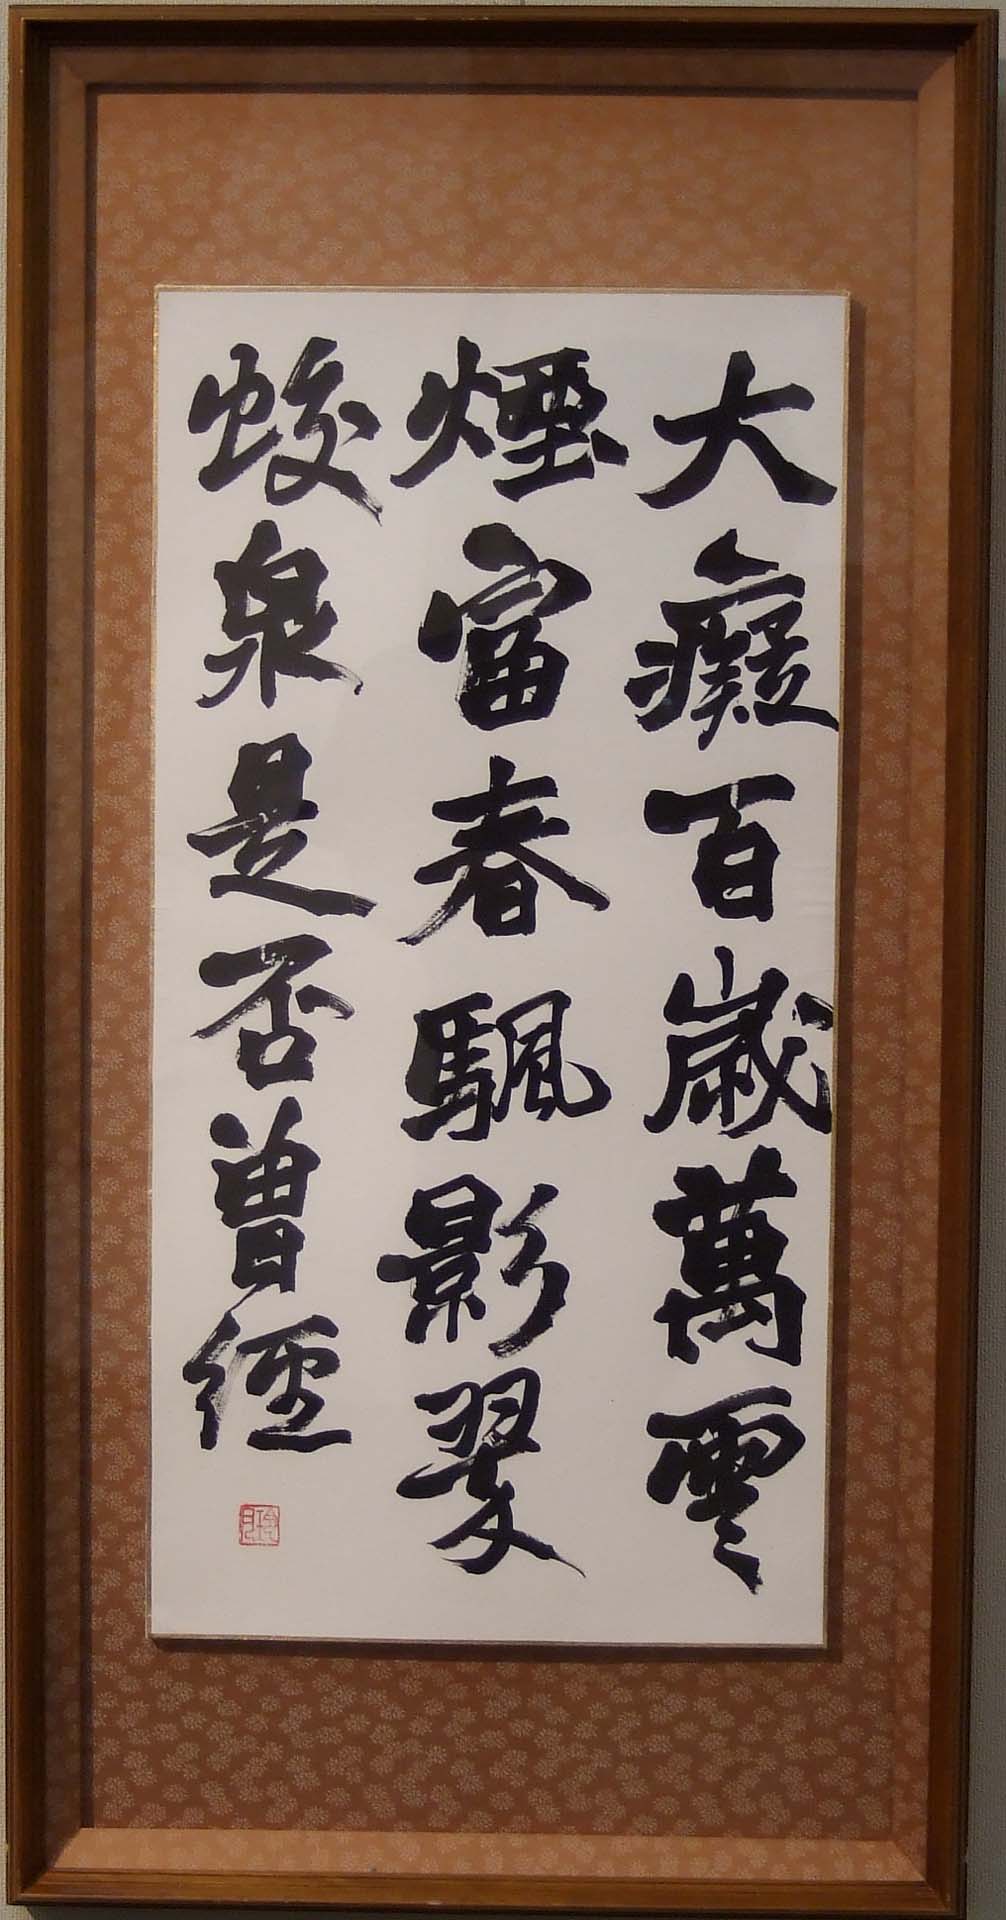 大癡百歳萬雲
煙富春颿影翠
蛟泉是否曾經